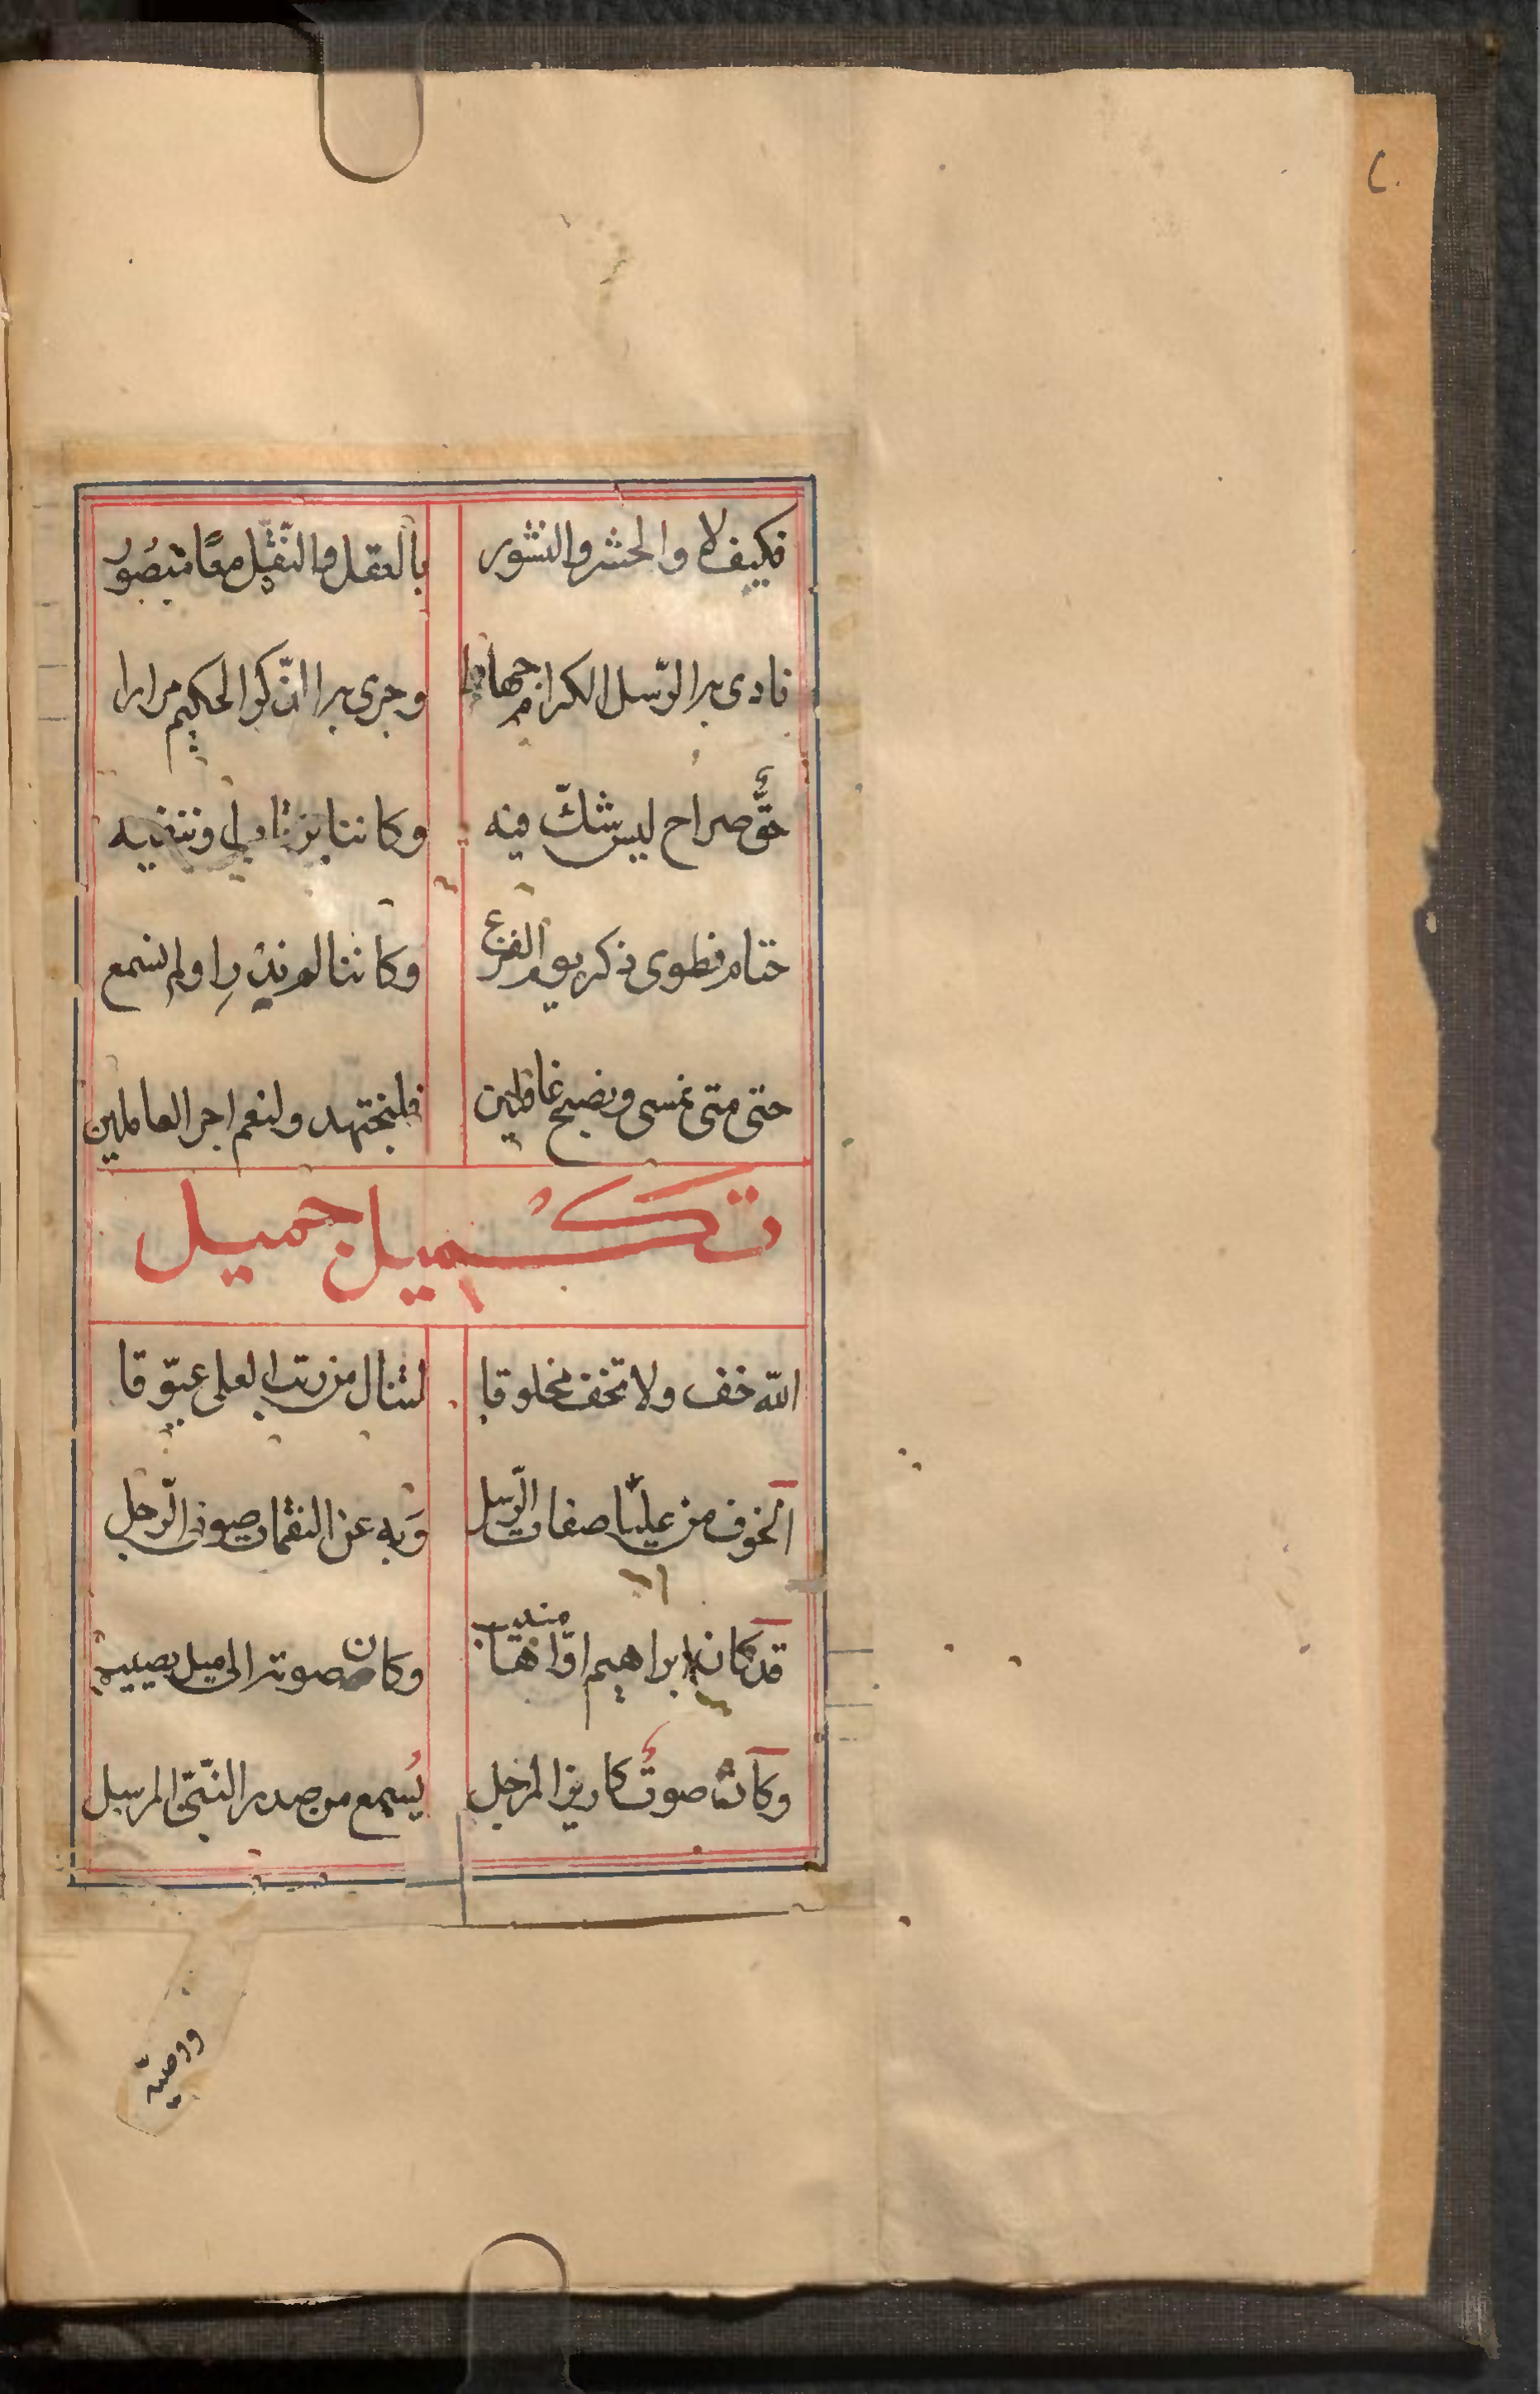 ٢٠
فكيف لا والحشر والنشور بالعقل والنقل معًا منصُور
نادى به الرّسل الكرام جهارا وجرى به الذّكر الحكيم مرارا
حقٌّ صراح ليس شكّ فيه وكاننا وننفيه
حتام نطوى ذكر يوم الفزع وكاننا لم ندر او لم نسمع
حتى متى نمسى ونصبح غافلين فلنجتهد ولنعم اجر العاملين
تكميل جميل
اللّه خف ولا تخف مخلوقا لتنال من رتب العلى عيّوقا
الخوف من عليّا صفات الرّسل وَبه عن النقمات صون الرّجل
قد كان ابراهيم اوّاها منيب وكان صوته الى ميل يصيب
وكان صوتٌ كازيز المرجل يُسمع من صدر النّبيّ المرسل
ووصيّه